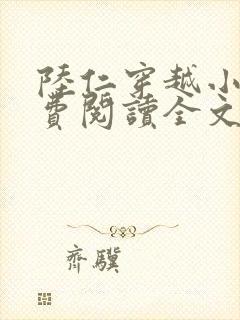 陸仁穿越小
費閱讀全文
齊驥